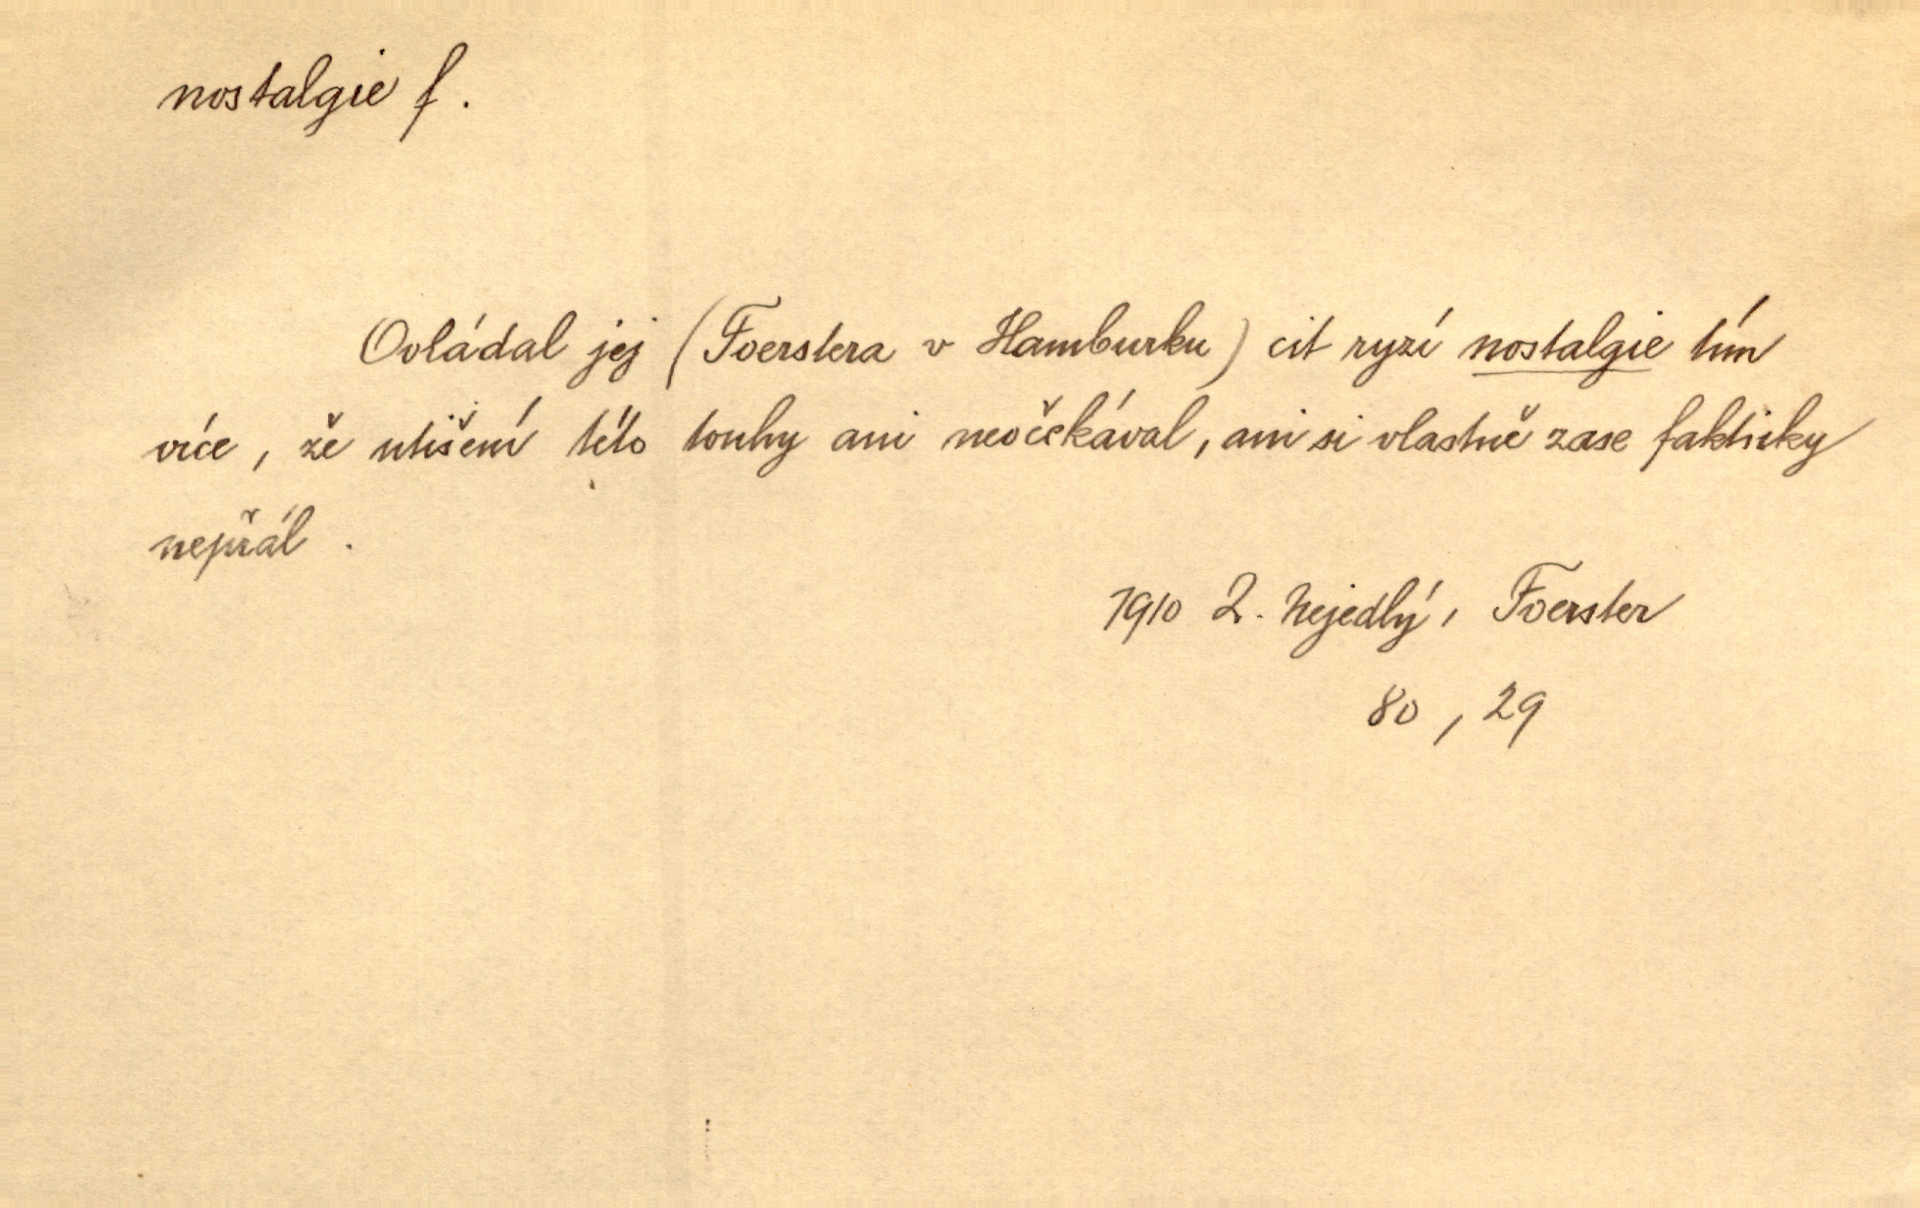 nostalgie f.
Ovládal jej (Foerstera v Hamburku) cit ryzí nostalgie tím
více, že utišení této touhy ani neočekával, ani si vlastně zase fakticky
nepřál.
1910 Z. Nejedlý, Foerster
80, 29